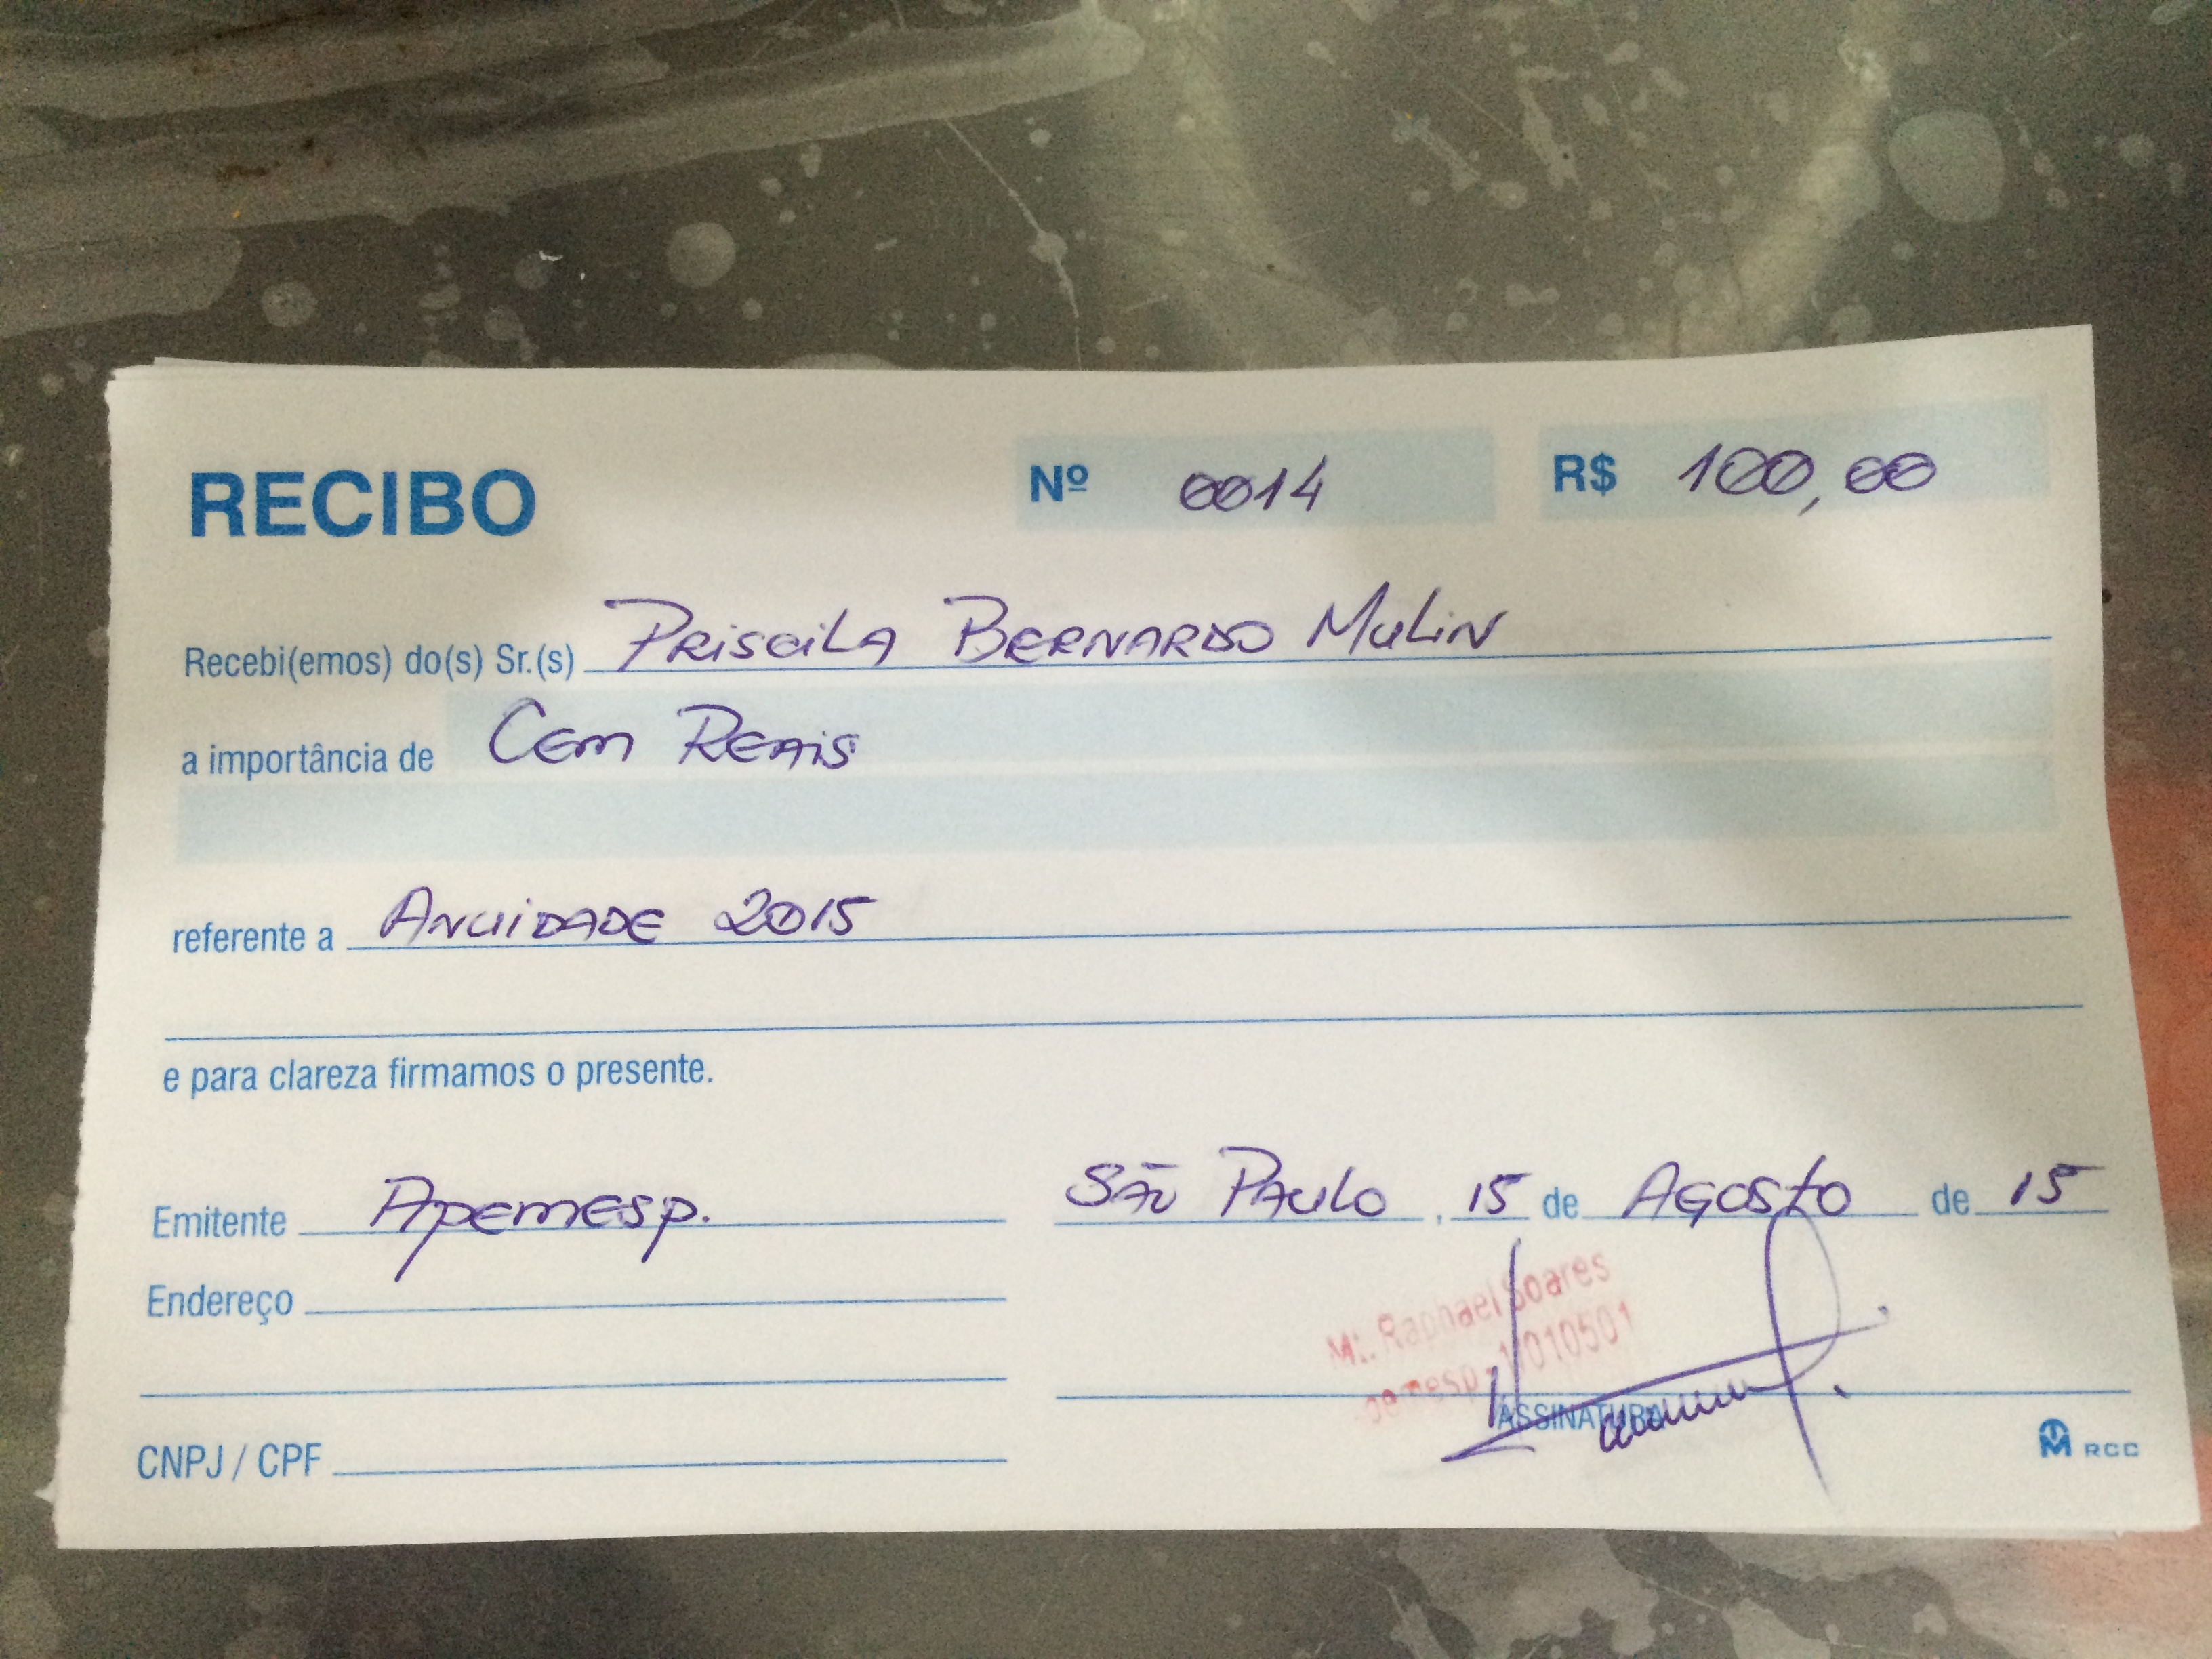 RECIBO Nº 0014 R$ 100,00
Recebi(emos) do(s) Sr.(s) Priscila Bernardo Mulin
a importância de Cem Reais
referente a Anuidade 2015
e para clareza firmamos o presente.
Emitente Apemesp. São Paulo, 15 de Agosto de 15
Endereço
Mt. Raphael Soares
1/010501
ASSINATURA
CNPJ / CPF
RCC